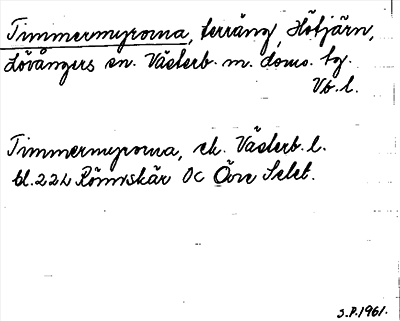 Timmermyrorna, terräng, Hötjärn,
Lövångers sn. Västerb. m. doms. tg.
Vb. l.
Timmermyrorna, ek. Västerb. l.
bl. 22L Rönnskär OC Övre Selet.
S.P. 1961.